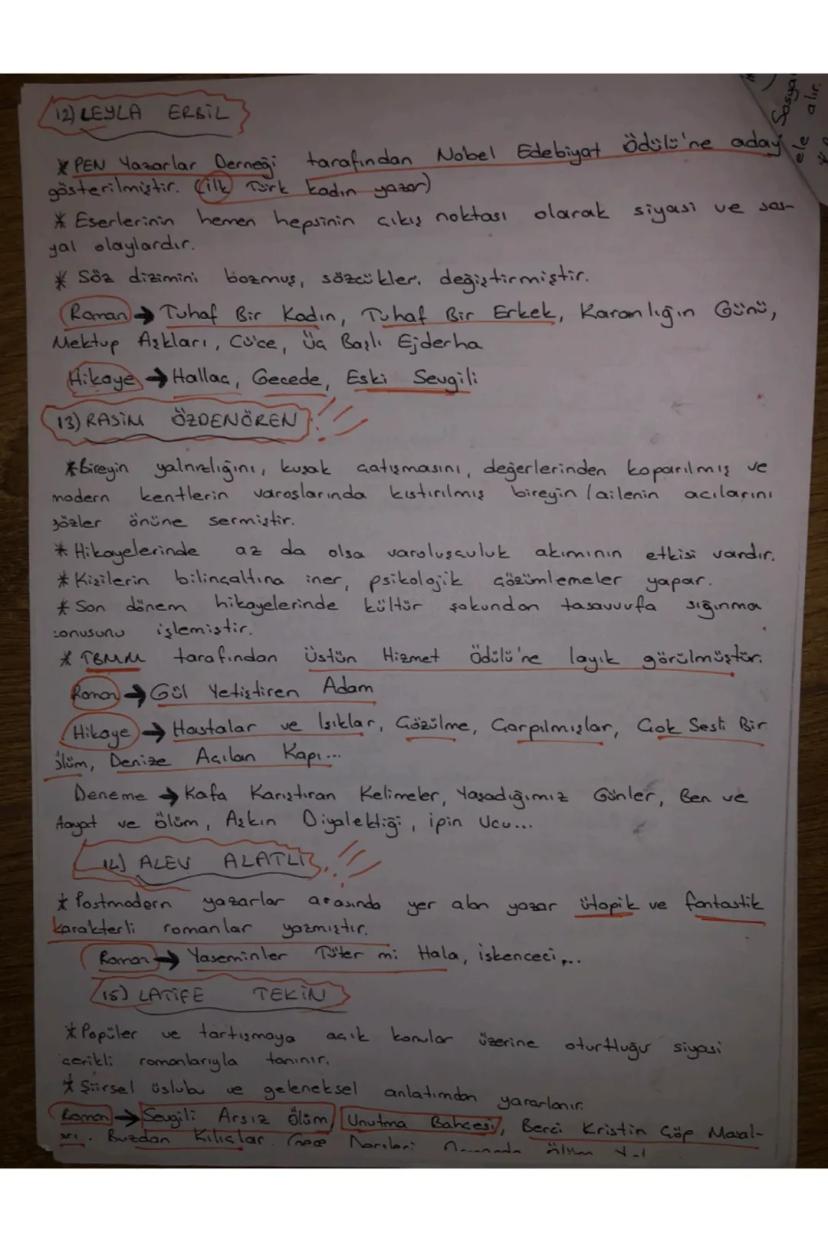 12) LEYLA ERBİL
* PEN Yazarlar Derneği tarafından Nobel Edebiyat Ödülü'ne aday
gösterilmiştir. (ilk Türk kadın yazar)
* Eserlerinin hemen hepsinin çıkış noktası olarak siyasi ve sos-
yal olaylardır.
* Söz dizimini bozmuş, sözcükleri değiştirmiştir.
Roman → Tuhaf Bir Kadın, Tuhaf Bir Erkek, Karanlığın Günü,
Mektup Aşkları, Cüce, Üç Başlı Ejderha
Hikaye → Hallaç, Gecede, Eski Sevgili
13) RASİM ÖZDENÖREN
* Bireyin yalnızlığını, kuşak çatışmasını, değerlerinden koparılmış ve
modern kentlerin varoşlarında kıstırılmış bireyin / ailenin acılarını
gözler önüne sermiştir.
* Hikayelerinde az da olsa varoluşçuluk akımının etkisi vardır.
* Kişilerin bilinçaltına iner, psikolojik çözümlemeler yapar.
* Son dönem hikayelerinde kültür şokundan tasavvufa sığınma
konusunu işlemiştir.
* TBMM tarafından Üstün Hizmet Ödülü'ne layık görülmüştür.
Roman → Gül Yetiştiren Adam
Hikaye → Hastalar ve Işıklar, Çözülme, Çarpılmışlar, Çok Sesli Bir
Ölüm, Denize Açılan Kapı...
Deneme → Kafa Karıştıran Kelimeler, Yaşadığımız Günler, Ben ve
Hayat ve Ölüm, Aşkın Diyalektiği, İpin Ucu...
14) ALEV ALATLI
* Postmodern yazarlar arasında yer alan yazar ütopik ve fantastik
karakterli romanlar yazmıştır.
Roman → Yaseminler Tüter mi Hala, İşkenceci,...
15) LATİFE TEKİN
* Popüler ve tartışmaya açık konular üzerine oturttuğu siyasi
içerikli romanlarıyla tanınır.
* Şiirsel üslubu ve geleneksel anlatımdan yararlanır.
Roman → Sevgili Arsız Ölüm, Unutma Bahçesi, Berci Kristin Çöp Masal-
ları. Buzdan Kılıçlar. Gece Dersleri Ormanda Ölüm
Sosya
ele alır.